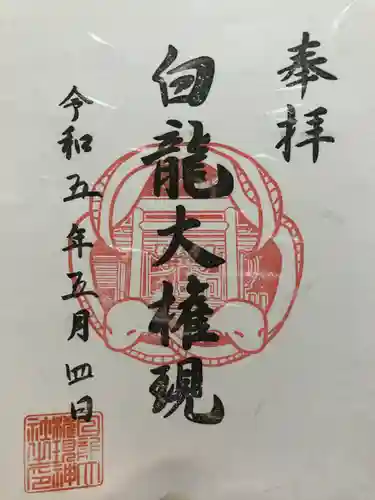 奉拝
白龍大権現
令和五年五月四日